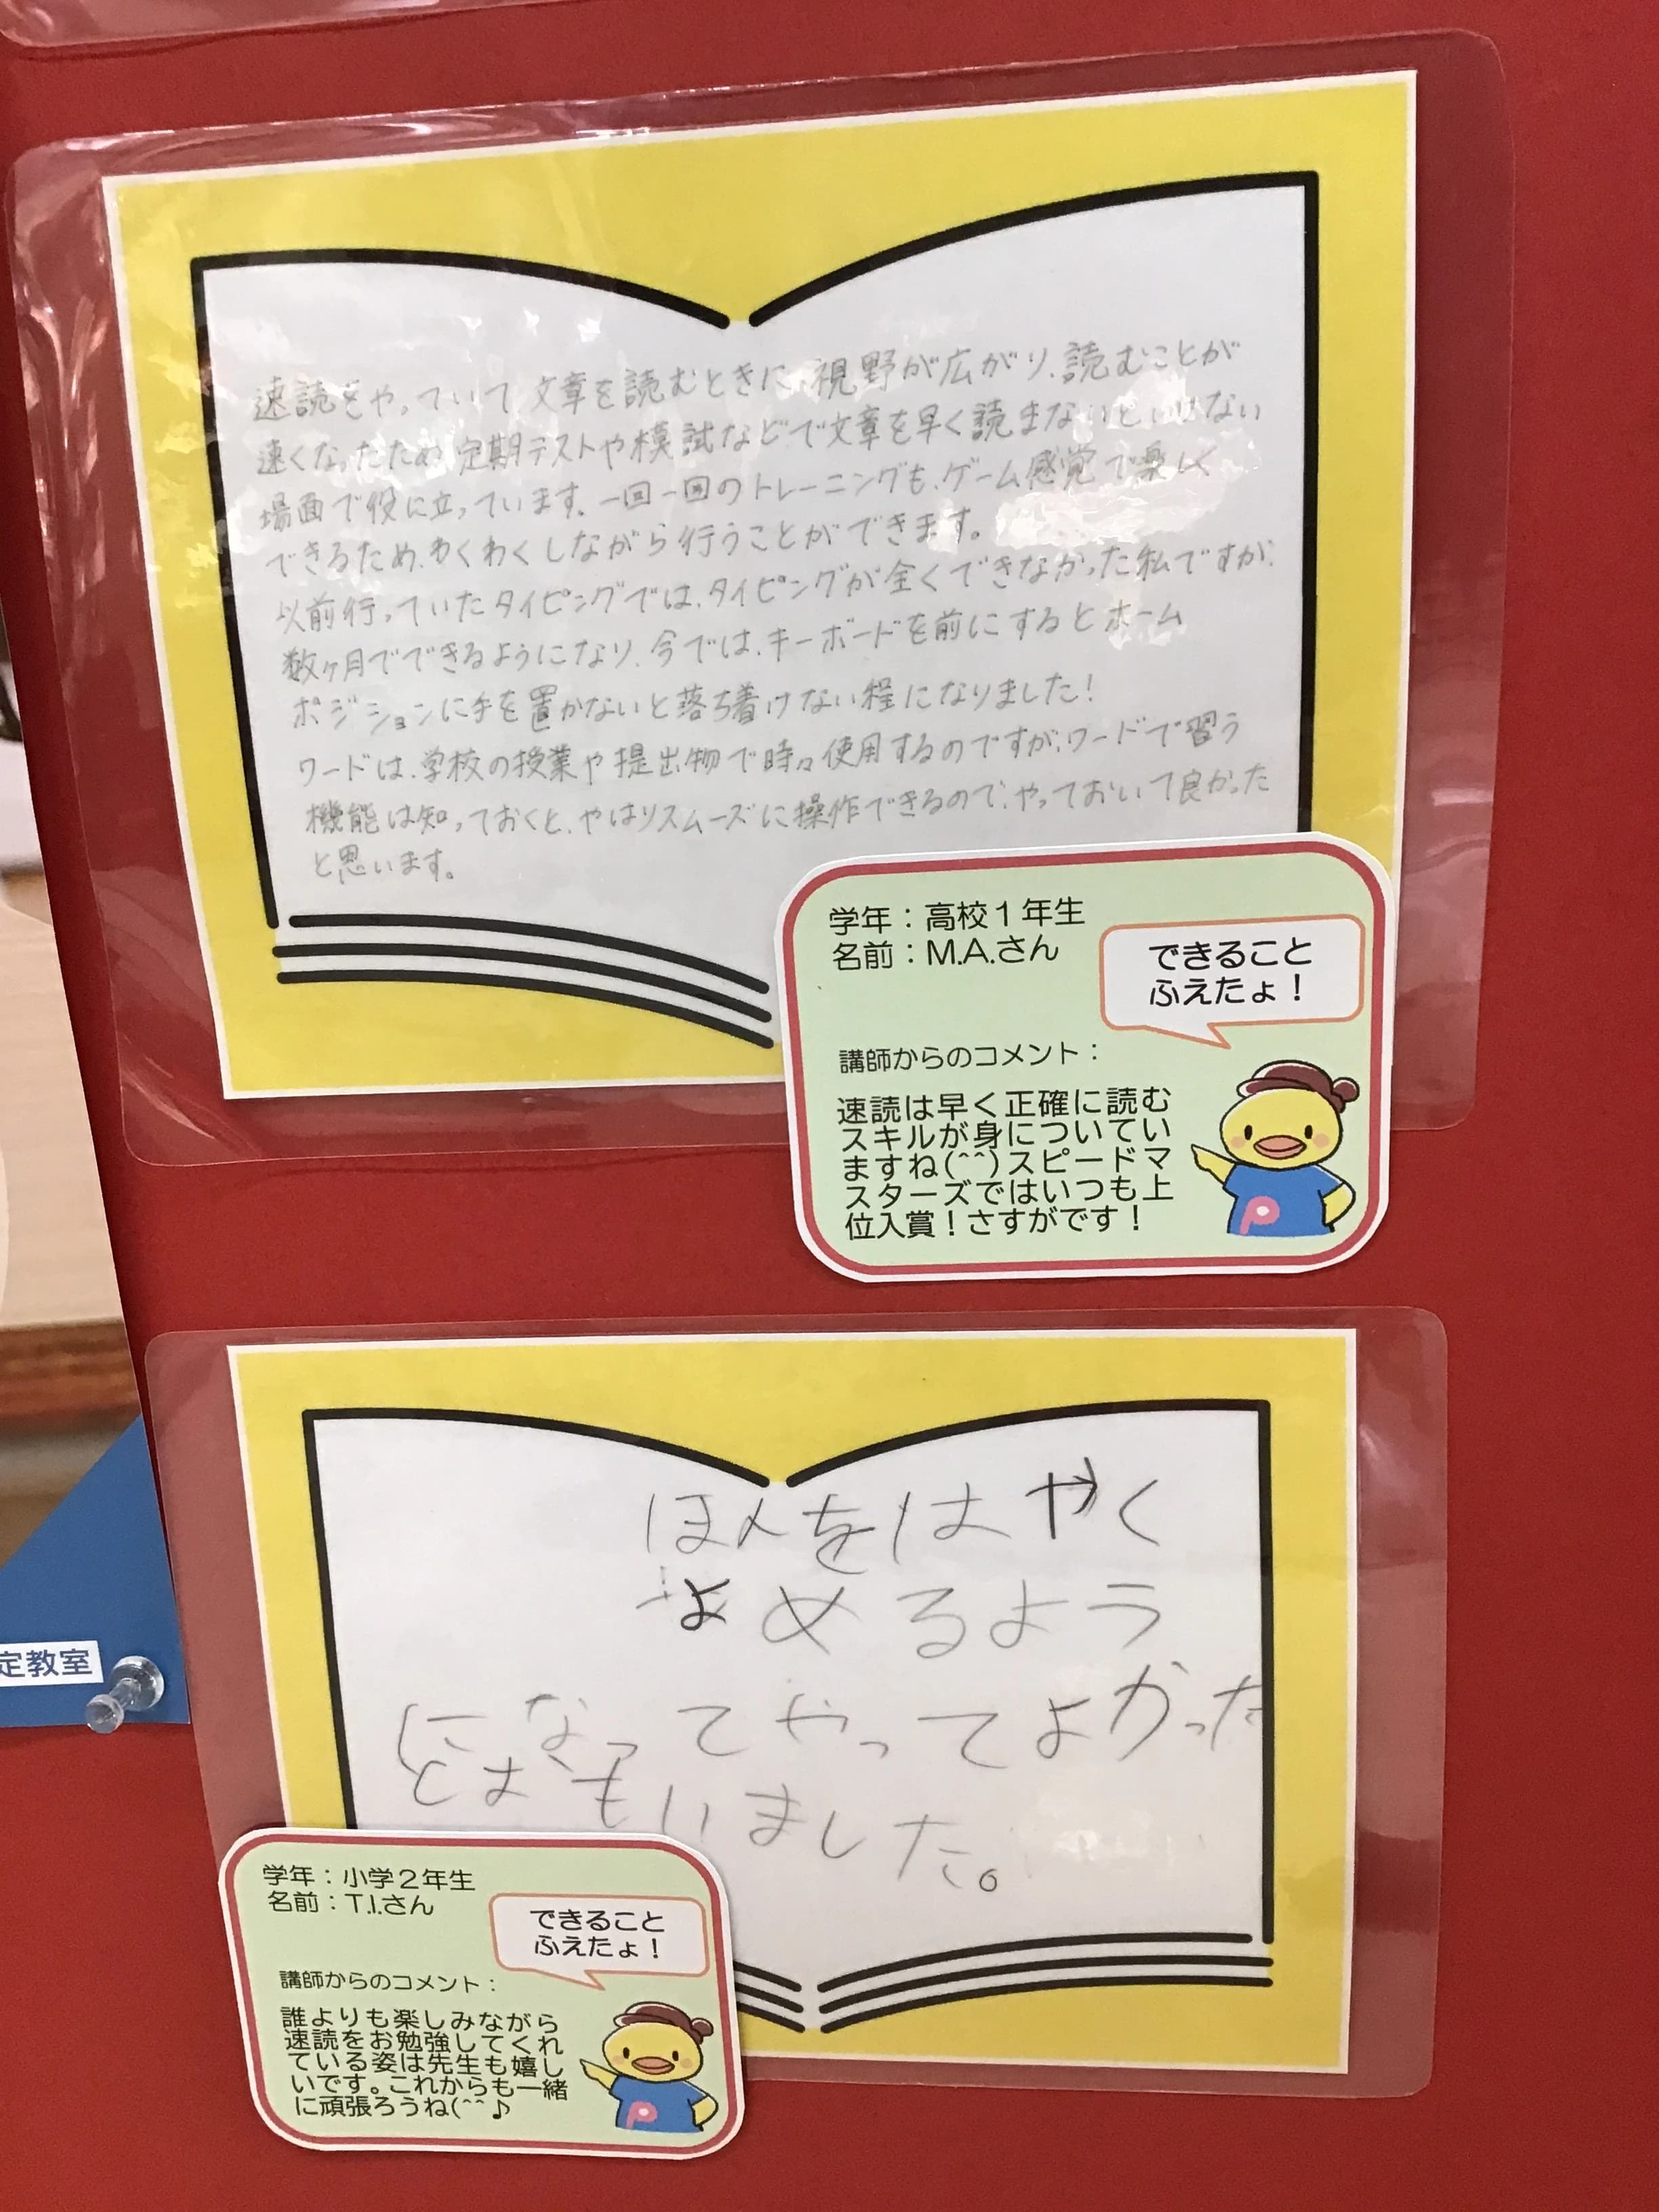 速読をやっていて、文章を読むときに、視野が広がり、読むことが
速くなったため、定期テストや模試などで文章を早く読まないといけない
場面で役に立っています。一回一回のトレーニングも、ゲーム感覚で楽しく
できるため、わくわくしながら行うことができます。
以前行っていたタイピングでは、タイピングが全くできなかった私ですが、
数ヶ月でできるようになり、今では、キーボードを前にするとホーム
ポジションに手を置かないと落ち着けない程になりました!
ワードは、学校の授業や提出物で時々使用するのですが、ワードで習う
機能は知っておくと、やはりスムーズに操作できるので、やっておいて良かった
と思います。
学年：高校１年生
名前：M.A.さん
できること
ふえたよ！
講師からのコメント：
速読は早く正確に読む
スキルが身についてい
ますね(^^)スピードマ
スターズではいつも上
位入賞！さすがです！
ほんをはやく
よめるよう
になってやってよかった
とおもいました。
学年：小学２年生
名前：T.I.さん
できること
ふえたよ！
講師からのコメント：
誰よりも楽しみながら
速読をお勉強してくれ
ている姿は先生も嬉し
いです。これからも一緒
に頑張ろうね(^^♪
定教室